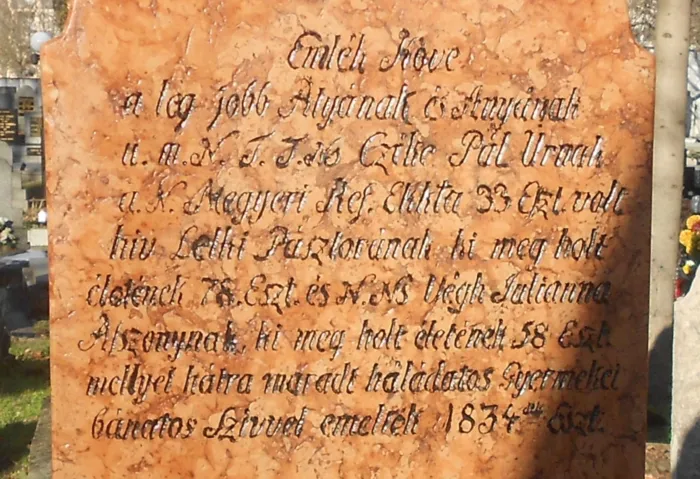 EmlékKöve
a leg jobb Atyának és Anyának
u. m. N. T. T. és Czike Pál Úrnak
a N. Megyeri Ref. Ekkľa 33 Eszt. volt
hiv Lelki Pásztorának ki meg holt
életének 78. Eszt. és N. NS Végh Julianna
Aszszonynak, ki meg holt életének 58 Eszt.
mellyet hátra maradt háládatos Gyermekei
bánatos Szivvel emeltek 1834dik Eszt.